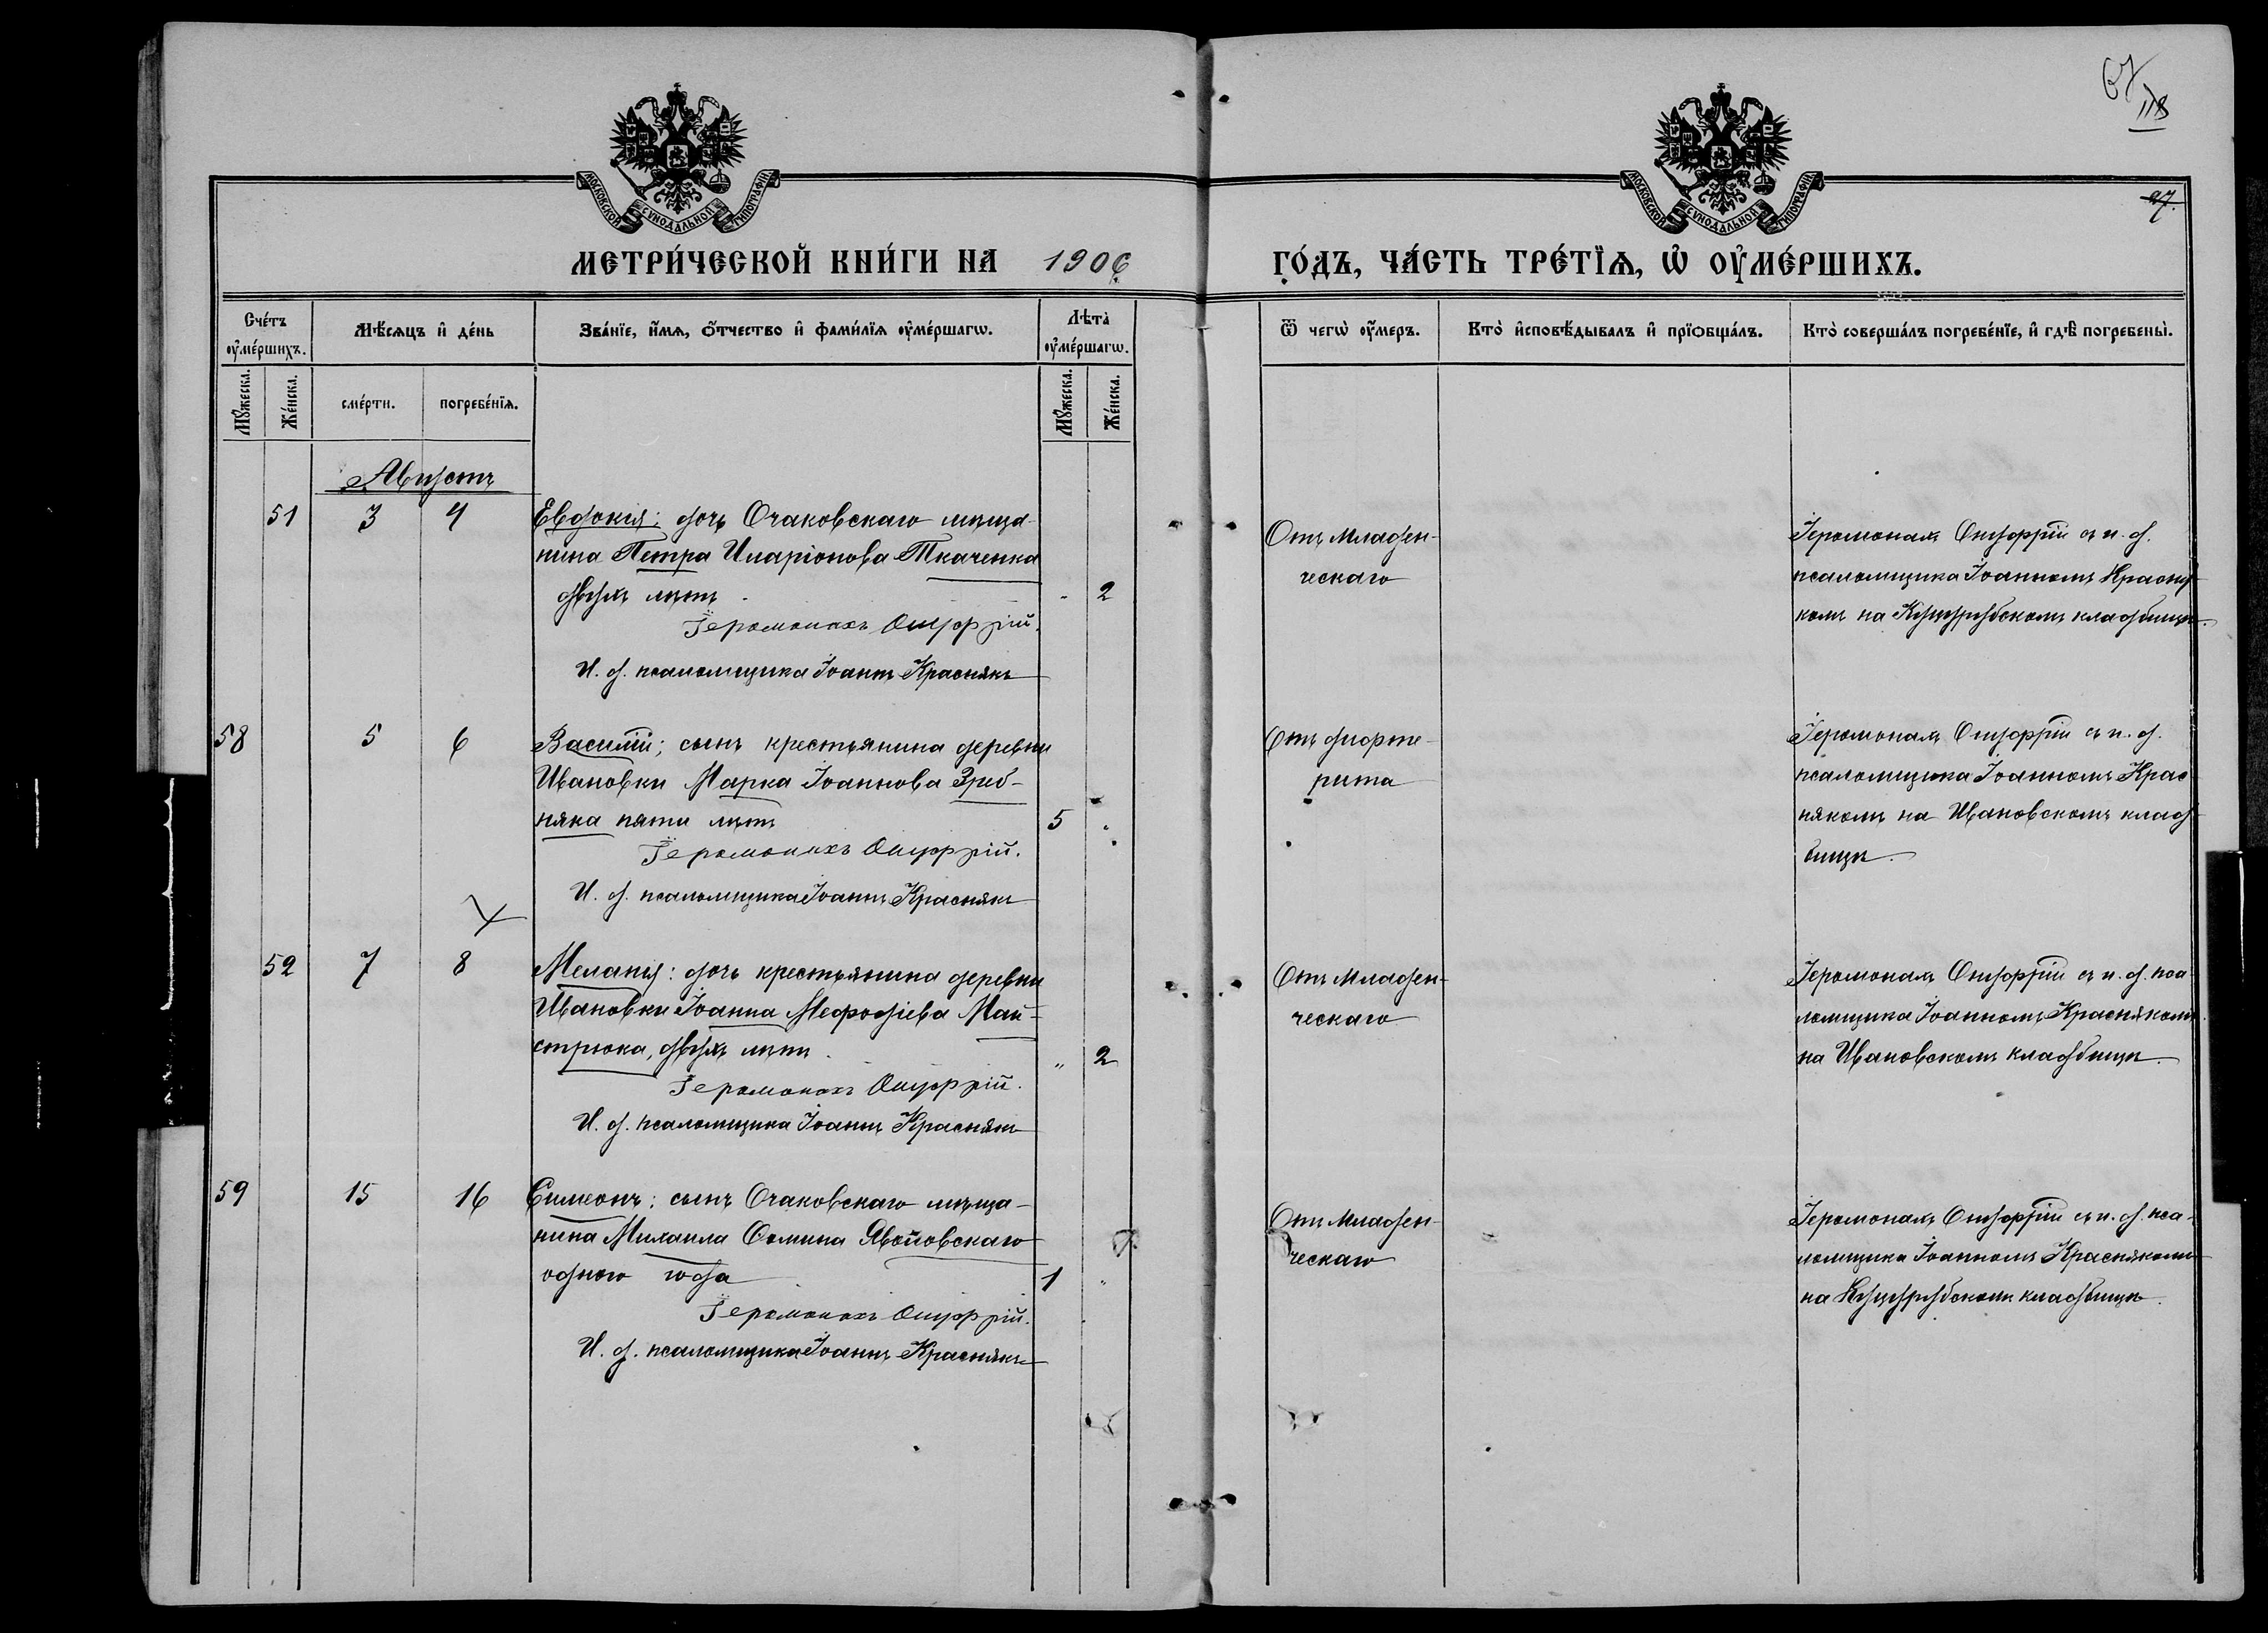 67
118
27.
МОСКОВСКОЙ СѴНОДАЛЬНОЙ ТИПОГРАФІИ
МОСКОВСКОЙ СѴНОДАЛЬНОЙ ТИПОГРАФІИ
МЕТРИ́ЧЕСКОЙ КНИ́ГИ НА 1906 ГО́ДЪ, ЧА́СТЬ ТРЕ́ТЇѦ, Ѡ҆ ОУ҆МЕ́РШИХЪ.
Сче́тъ оу҆ме́ршихъ.
Мѣ́сяцъ и҆ де́нь
Зва́нїе, и҆́мѧ, ѻ҆́тчество и҆ фами́лїѧ оу҆ме́ршагѡ.
Лѣ́та оу҆ме́ршагѡ.
Ѿ чегѡ̀ оу҆́меръ.
Кто̀ и҆сповѣ́дывалъ и҆ прїѻбща́лъ.
Кто̀ соверша́лъ погребе́нїе, и҆ гдѣ̀ погребены̀.
Мꙋ́жеска.
Же́нска.
сме́рти.
погребе́нїѧ.
Мꙋ́жеска.
Же́нска.
Августъ
51 3 4 Евдокія: дочь Очаковскаго мѣща-
нина Петра Иларіонова Ткаченка
двухъ лѣтъ. " 2
Іеромонахъ Онуфрій.
И. д. псаломщика Іоаннъ Краснякъ
Отъ младен-
ческаго
Іеромонахъ Онуфрій съ и. д.
псаломщика Іоанномъ Красня-
комъ на Куцурубскомъ кладбищѣ.
58 5 6 Василій; сынъ крестьянина деревни
Ивановки Марка Іоаннова Зреб-
няка пяти лѣтъ 5 "
Іеромонахъ Онуфрій.
И. д. псаломщика Іоаннъ Краснякъ
Отъ дифте-
рита
Іеромонахъ Онуфрій съ и. д.
псаломщика Іоанномъ Крас-
някомъ на Ивановскомъ клад-
бищѣ.
52 7 8 Меланія: дочь крестьянина деревни
Ивановки Іоанна Мефодіева Май-
стрюка, двухъ лѣтъ. " 2
Іеромонахъ Онуфрій.
И. д. псаломщика Іоаннъ Краснякъ
Отъ младен-
ческаго
Іеромонахъ Онуфрій съ и. д. пса-
ломщика Іоанномъ Краснякомъ
на Ивановскомъ кладбищѣ.
59 15 16 Симеонъ: сынъ Очаковскаго мѣща-
нина Михаила Ѳомина Явойовскаго
одного года 1 "
Іеромонахъ Онуфрій.
И. д. псаломщика Іоаннъ Краснякъ
Отъ младен-
ческаго
Іеромонахъ Онуфрій съ и. д. пса-
ломщика Іоанномъ Краснякомъ
на Куцурубскомъ кладбищѣ.